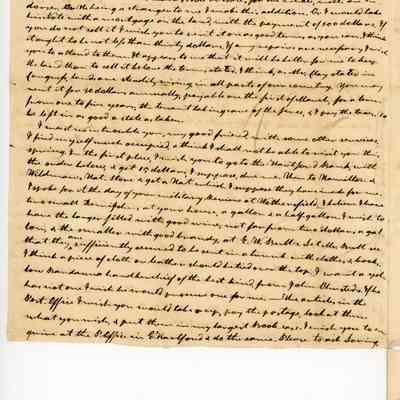 however, Both being a stranger to me, I make this addition. Or I would take
his note with a mortgage on the land, with the payment of 500 dollars. If
you do not sell it I wish you to rent it on as good terms as you can. I think
it ought to be not less than thirty dollars. If any repairs are necessary I wish
you to attend to them. It appears to me that it will be better for me to keep
the land than to sell it below the terms stated, I think, as Mr. Flag stated in
Congress, lands are steadily rising in all parts of our country. You may
rent it for 30 dollars annually, payable on the first of March, for a term
from one to five years, the tenant taking care of the fences, & pay the taxes, to
be left in as good a state as taken.
I must now trouble you, my good friend, with some other services.
I find myself much occupied, & think I shall not be able to visit you this
spring. In the first place, I wish you to go to the Hartford Bank with
the order below, & get 15 dollars, I suppose, due me. Then to Hamilton &
Wildman's Hat Store & get a Hat which I suppose they have made for me.
I spoke for it the day of your military Review at Wethersfield. I believe I have
two small Demijohns at your house, a gallon & a half gallon. I wish to
have the larger filled with good wine, not far from two dollars a gal
lon, & the smaller with good brandy, at E. W. Bull's. Let Mr. Bull see
that they are sufficiently secured to be sent in a trunk with clothes & books;
I think a piece of cloth or leather should be tied over the top. I want a yel
low Bandanna handkerchief of the best kind, from John Olmsted's. If he
has not one I wish he would procure one for me. The articles in the
Post-Office I wish you would take up, pay the postage, look at them
what you wish, & put them in my largest Book case. I wish you to en
quire at the P. Office in E. Hartford & do the same. Please to ask Loring